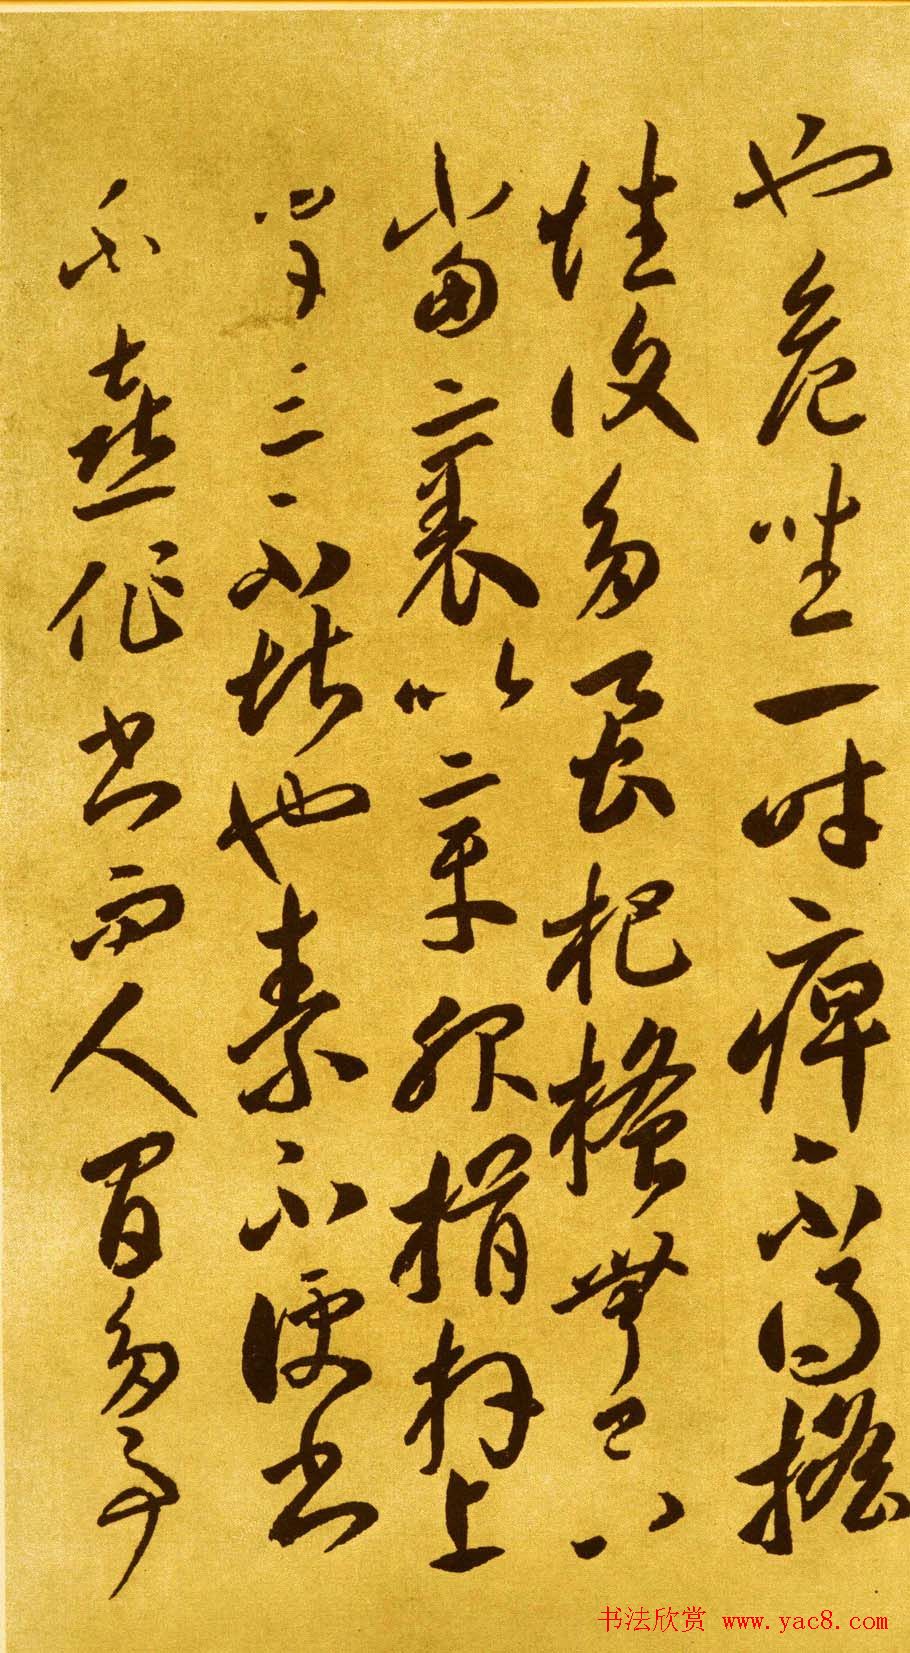 也危坐一时痹不得搖
性復多虱杷搔無已而
當裹以章服揖拜上
官三不堪也素不便書
不喜作書而人間多事
书法欣赏 www.yac8.com